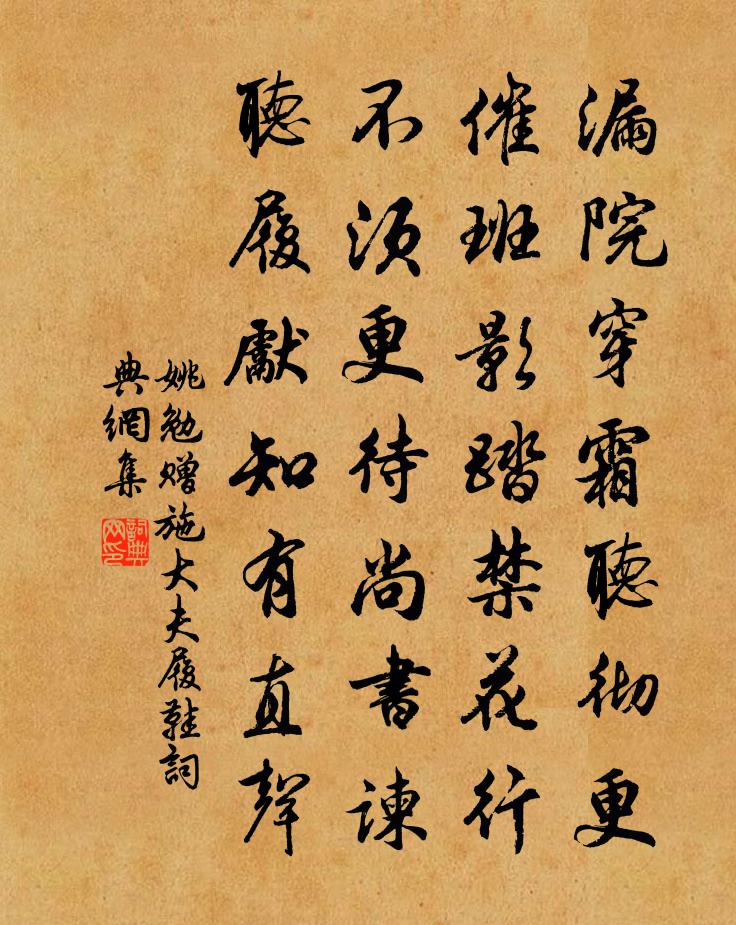 漏院穿霜聽彻更
催班影踏禁花行
不須更待尚書諫
聽履獻知有直聲
姚勉赠施大夫履鞋詞
典網集
詞典网印